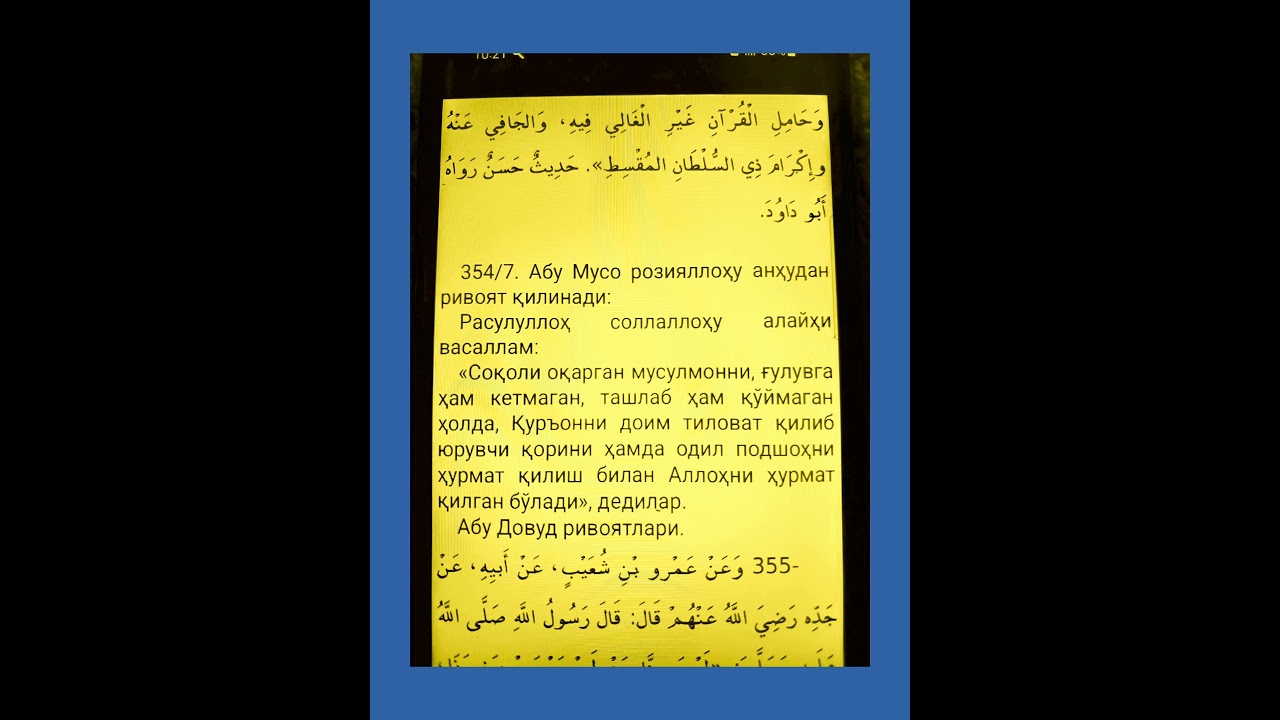 10:21
وَحَامِلِ الْقُرْآنِ غَيْرِ الْغَالِي فِيهِ، وَالجَافِي عَنْهُ
وإِكْرَامَ ذِي السُّلْطَانِ المُقْسِطِ». حَدِيثٌ حَسَنٌ رَوَاهُ
أَبُو دَاوُدَ.
354/7. Абу Мусо розияллоҳу анҳудан
ривоят қилинади:
Расулуллоҳ соллаллоҳу алайҳи
васаллам:
«Соқоли оқарган мусулмонни, ғулувга
ҳам кетмаган, ташлаб ҳам қўймаган
ҳолда, Қуръонни доим тиловат қилиб
юрувчи қорини ҳамда одил подшоҳни
ҳурмат қилиш билан Аллоҳни ҳурмат
қилган бўлади», дедилар.
Абу Довуд ривоятлари.
355- وَعَنْ عَمْرِو بْنِ شُعَيْبٍ، عَنْ أَبِيهِ، عَنْ
جَدِّه رَضِيَ اللَّهُ عَنْهُمْ قَالَ: قَالَ رَسُولُ اللَّهِ صَلَّى اللَّهُ